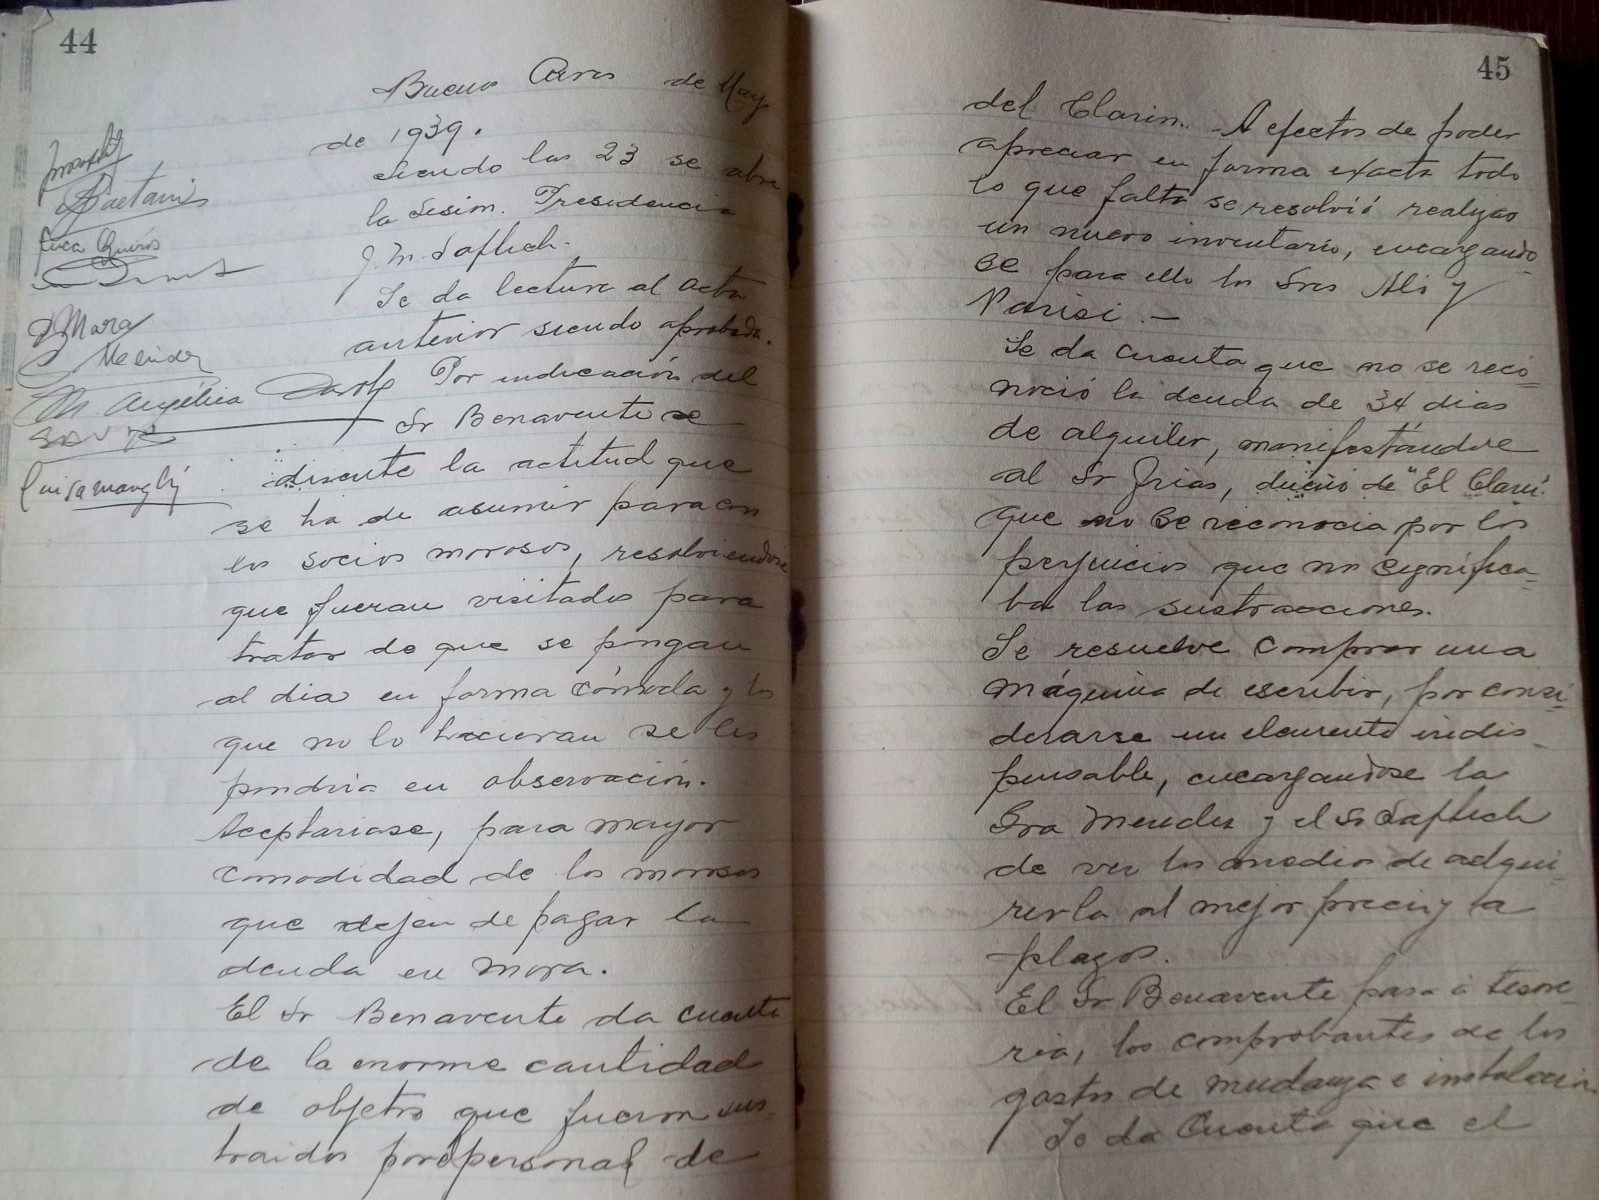 44
Buenos Aires de May
de 1939.
Siendo las 23 se abre
la Sesion. Presidencia
J. M. Saflich.
Se da lectura al acta
anterior siendo aprobada.
Por indicación del
Sr Benavente se
discute la actitud que
se ha de asumir para con
los socios morosos, resolviendose
que fueran visitados para
tratar de que se pongan
al dia en forma cómoda y los
que no lo hicieran se les
pondria en observación.
Aceptariase, para mayor
comodidad de los morosos
que dejen de pagar la
deuda en mora.
El Sr Benavente da cuenta
de la enorme cantidad
de objetos que fueron sus-
traidos por personal de
Gaetani
Luca Quirós
Mara
Mendez
M. Angélica
Luisa
45
del Clarin. - A efectos de poder
apreciar en forma exacta todo
lo que falta se resolvió realizar
un nuevo inventario, encargando-
se para ello los Sres Ali y
Parisi. -
Se da cuenta que no se reco=
noció la deuda de 34 dias
de alquiler, manifestándose
al Sr Frias, dueño de "El Clarin"
que no se reconocia por los
perjuicios que nos significa-
ba las sustracciones.
Se resuelve comprar una
máquina de escribir, por consi=
derarse un elemento indis-
pensable, encargandose la
Sra Mendez y el Sr Saflich
de ver los medios de adqui-
rirla al mejor precio y a
plazos.
El Sr Benavente pasa a tesore-
ria, los comprobantes de los
gastos de mudanza e instalación.
Se da Cuenta que el